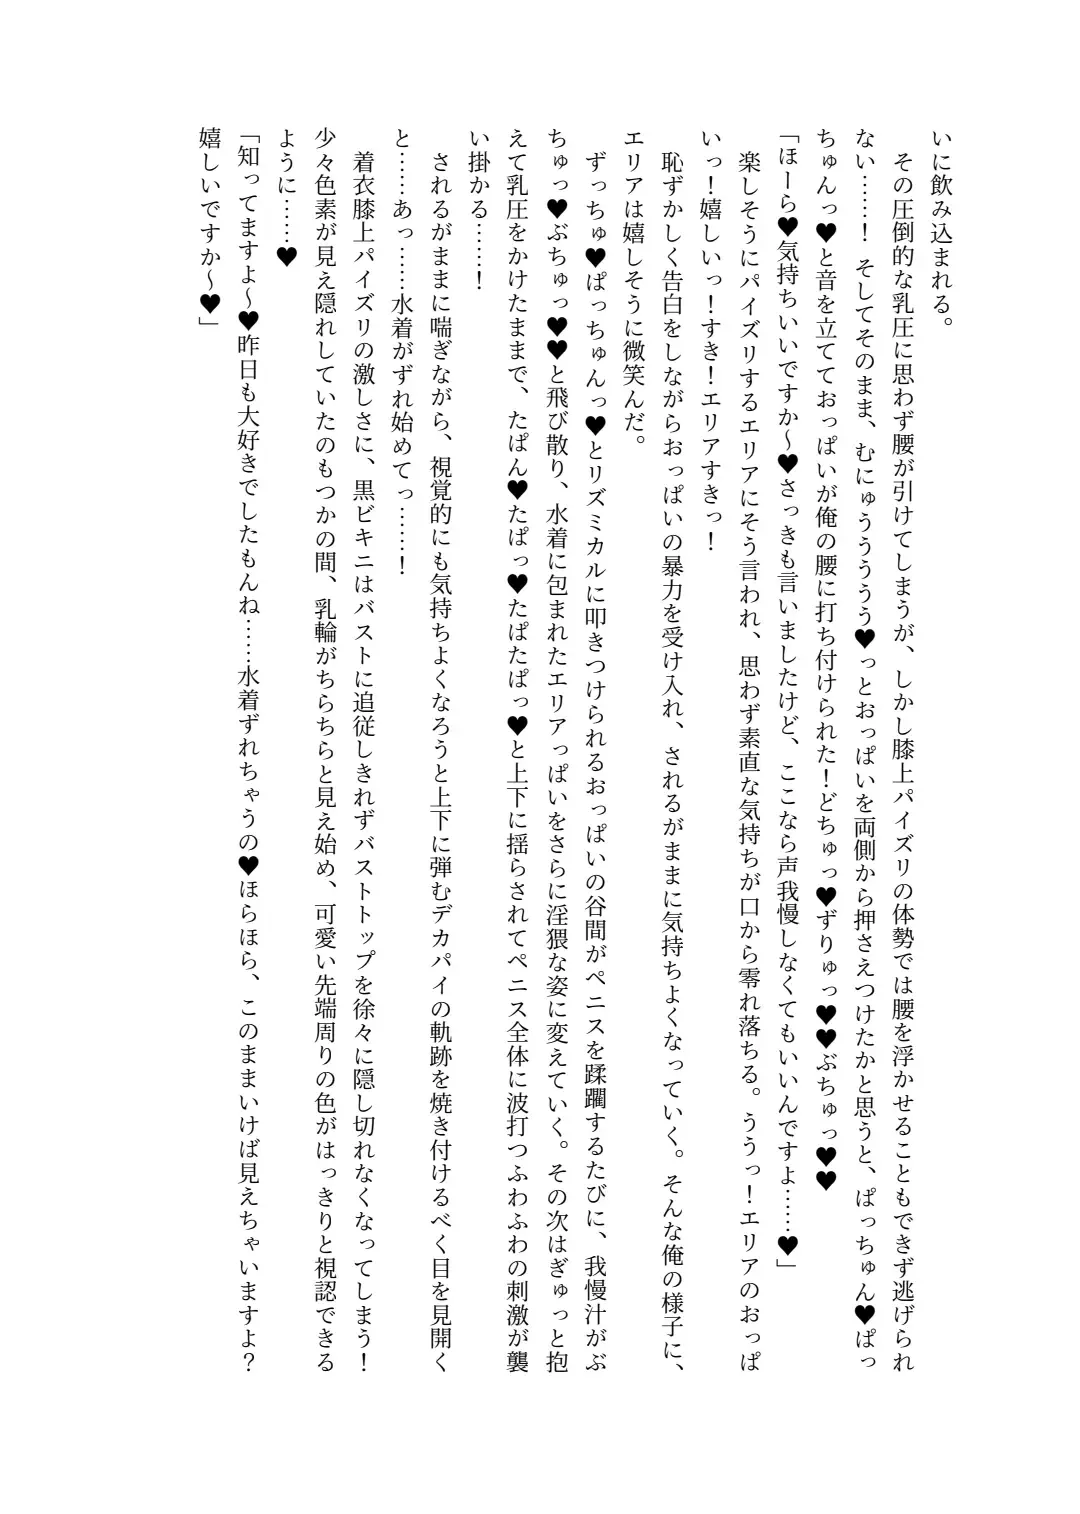 いに飲み込まれる。
その圧倒的な乳圧に思わず腰が引けてしまうが、しかし膝上パイズリの体勢では腰を浮かせることもできず逃げられ
ない……！ そしてそのまま、むにゅううううう♥っとおっぱいを両側から押さえつけたかと思うと、ぱっちゅん♥ぱっ
ちゅんっ♥と音を立てておっぱいが俺の腰に打ち付けられた！どちゅっ♥ずりゅっ♥♥ぶちゅっ♥♥
「ほーら♥気持ちいいですか～♥さっきも言いましたけど、ここなら声我慢しなくてもいいんですよ……♥」
楽しそうにパイズリするエリアにそう言われ、思わず素直な気持ちが口から零れ落ちる。ううっ！エリアのおっぱ
いっ！嬉しいっ！すき！エリアすきっ！
恥ずかしく告白をしながらおっぱいの暴力を受け入れ、されるがままに気持ちよくなっていく。そんな俺の様子に、
エリアは嬉しそうに微笑んだ。
ずっちゅ♥ぱっちゅんっ♥とリズミカルに叩きつけられるおっぱいの谷間がペニスを蹂躙するたびに、我慢汁がぶ
ちゅっ♥ぶちゅっ♥♥と飛び散り、水着に包まれたエリアっぱいをさらに淫猥な姿に変えていく。その次はぎゅっと抱
えて乳圧をかけたままで、たぱん♥たぱっ♥たぱたぱっ♥と上下に揺らされてペニス全体に波打つふわふわの刺激が襲
い掛かる……！
されるがままに喘ぎながら、視覚的にも気持ちよくなろうと上下に弾むデカパイの軌跡を焼き付けるべく目を見開く
と……あっ……水着がずれ始めてっ……！
着衣膝上パイズリの激しさに、黒ビキニはバストに追従しきれずバストトップを徐々に隠し切れなくなってしまう！
少々色素が見え隠れしていたのもつかの間、乳輪がちらちらと見え始め、可愛い先端周りの色がはっきりと視認できる
ように……♥
「知ってますよ～♥昨日も大好きでしたもんね……水着ずれちゃうの♥ほらほら、このままいけば見えちゃいますよ？
嬉しいですか～♥」